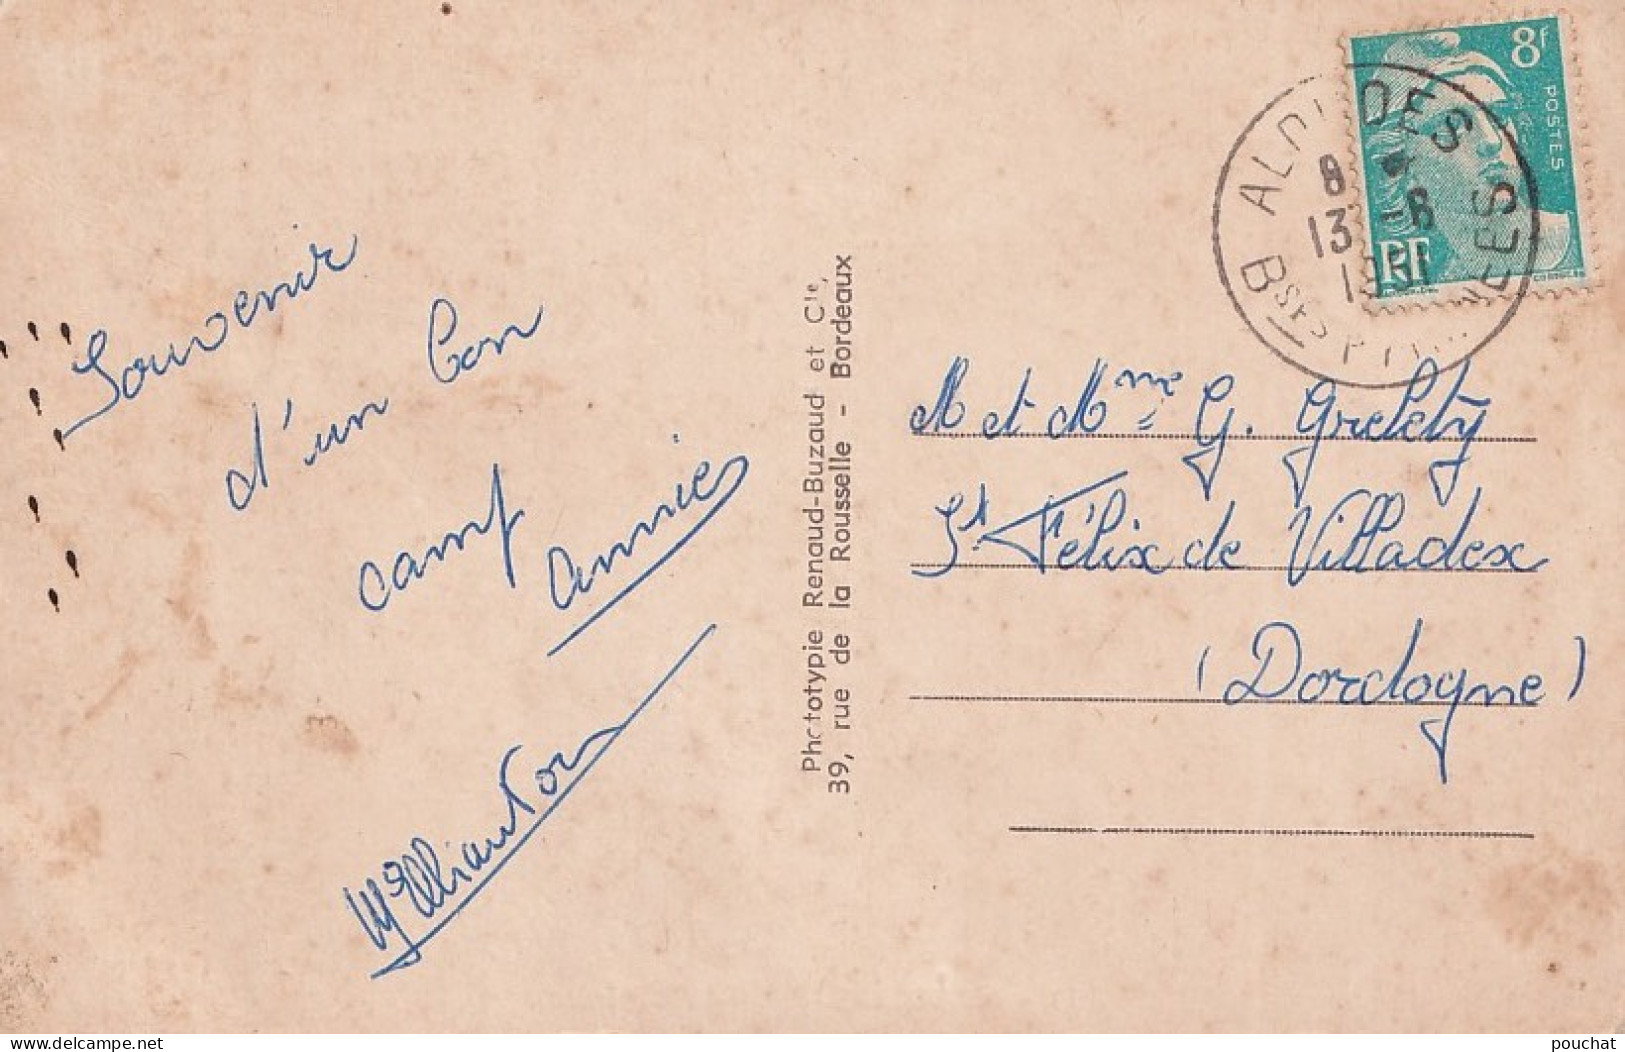 Souvenir
d'un bon
camp
Annie
Phototypie Renaud-Buzaud et Cie,
39, rue de la Rousselle - Bordeaux
8f
POSTES
RF
ALDUDES
8
13 -6
1951
Bses PYRENEES
M et Mme G. Grelety
St Félix de Villadex
(Dordogne)
pouchat